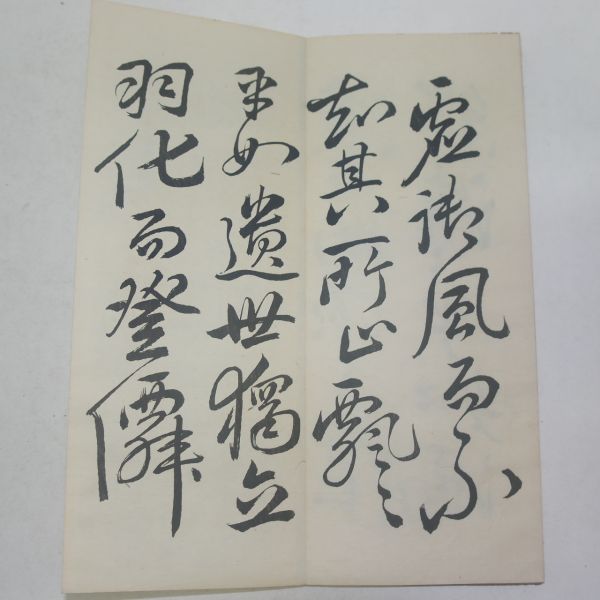 虛御風而不
知其所止飄〻
乎如遺世獨立
羽化而登僊